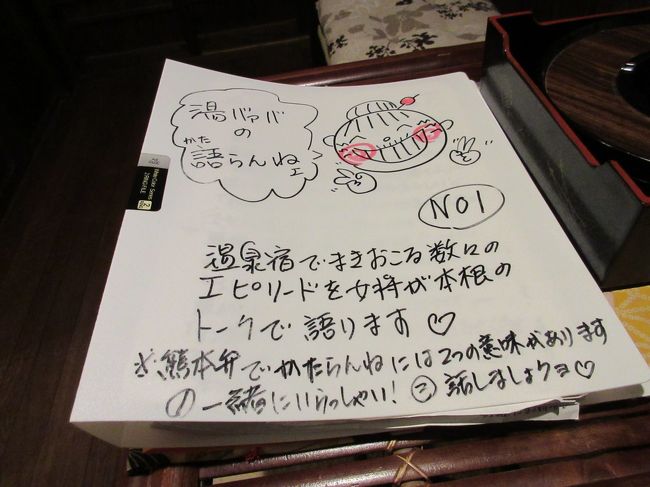 湯バァバ
の
かた
語らんねェ
NO1
温泉宿でまきおこる数々の
エピソードを女将が本根の
トークで語ります♡
※熊本弁でかたらんねには2つの意味があります
①一緒にいらっしゃい! ②話しましょうヨ♡